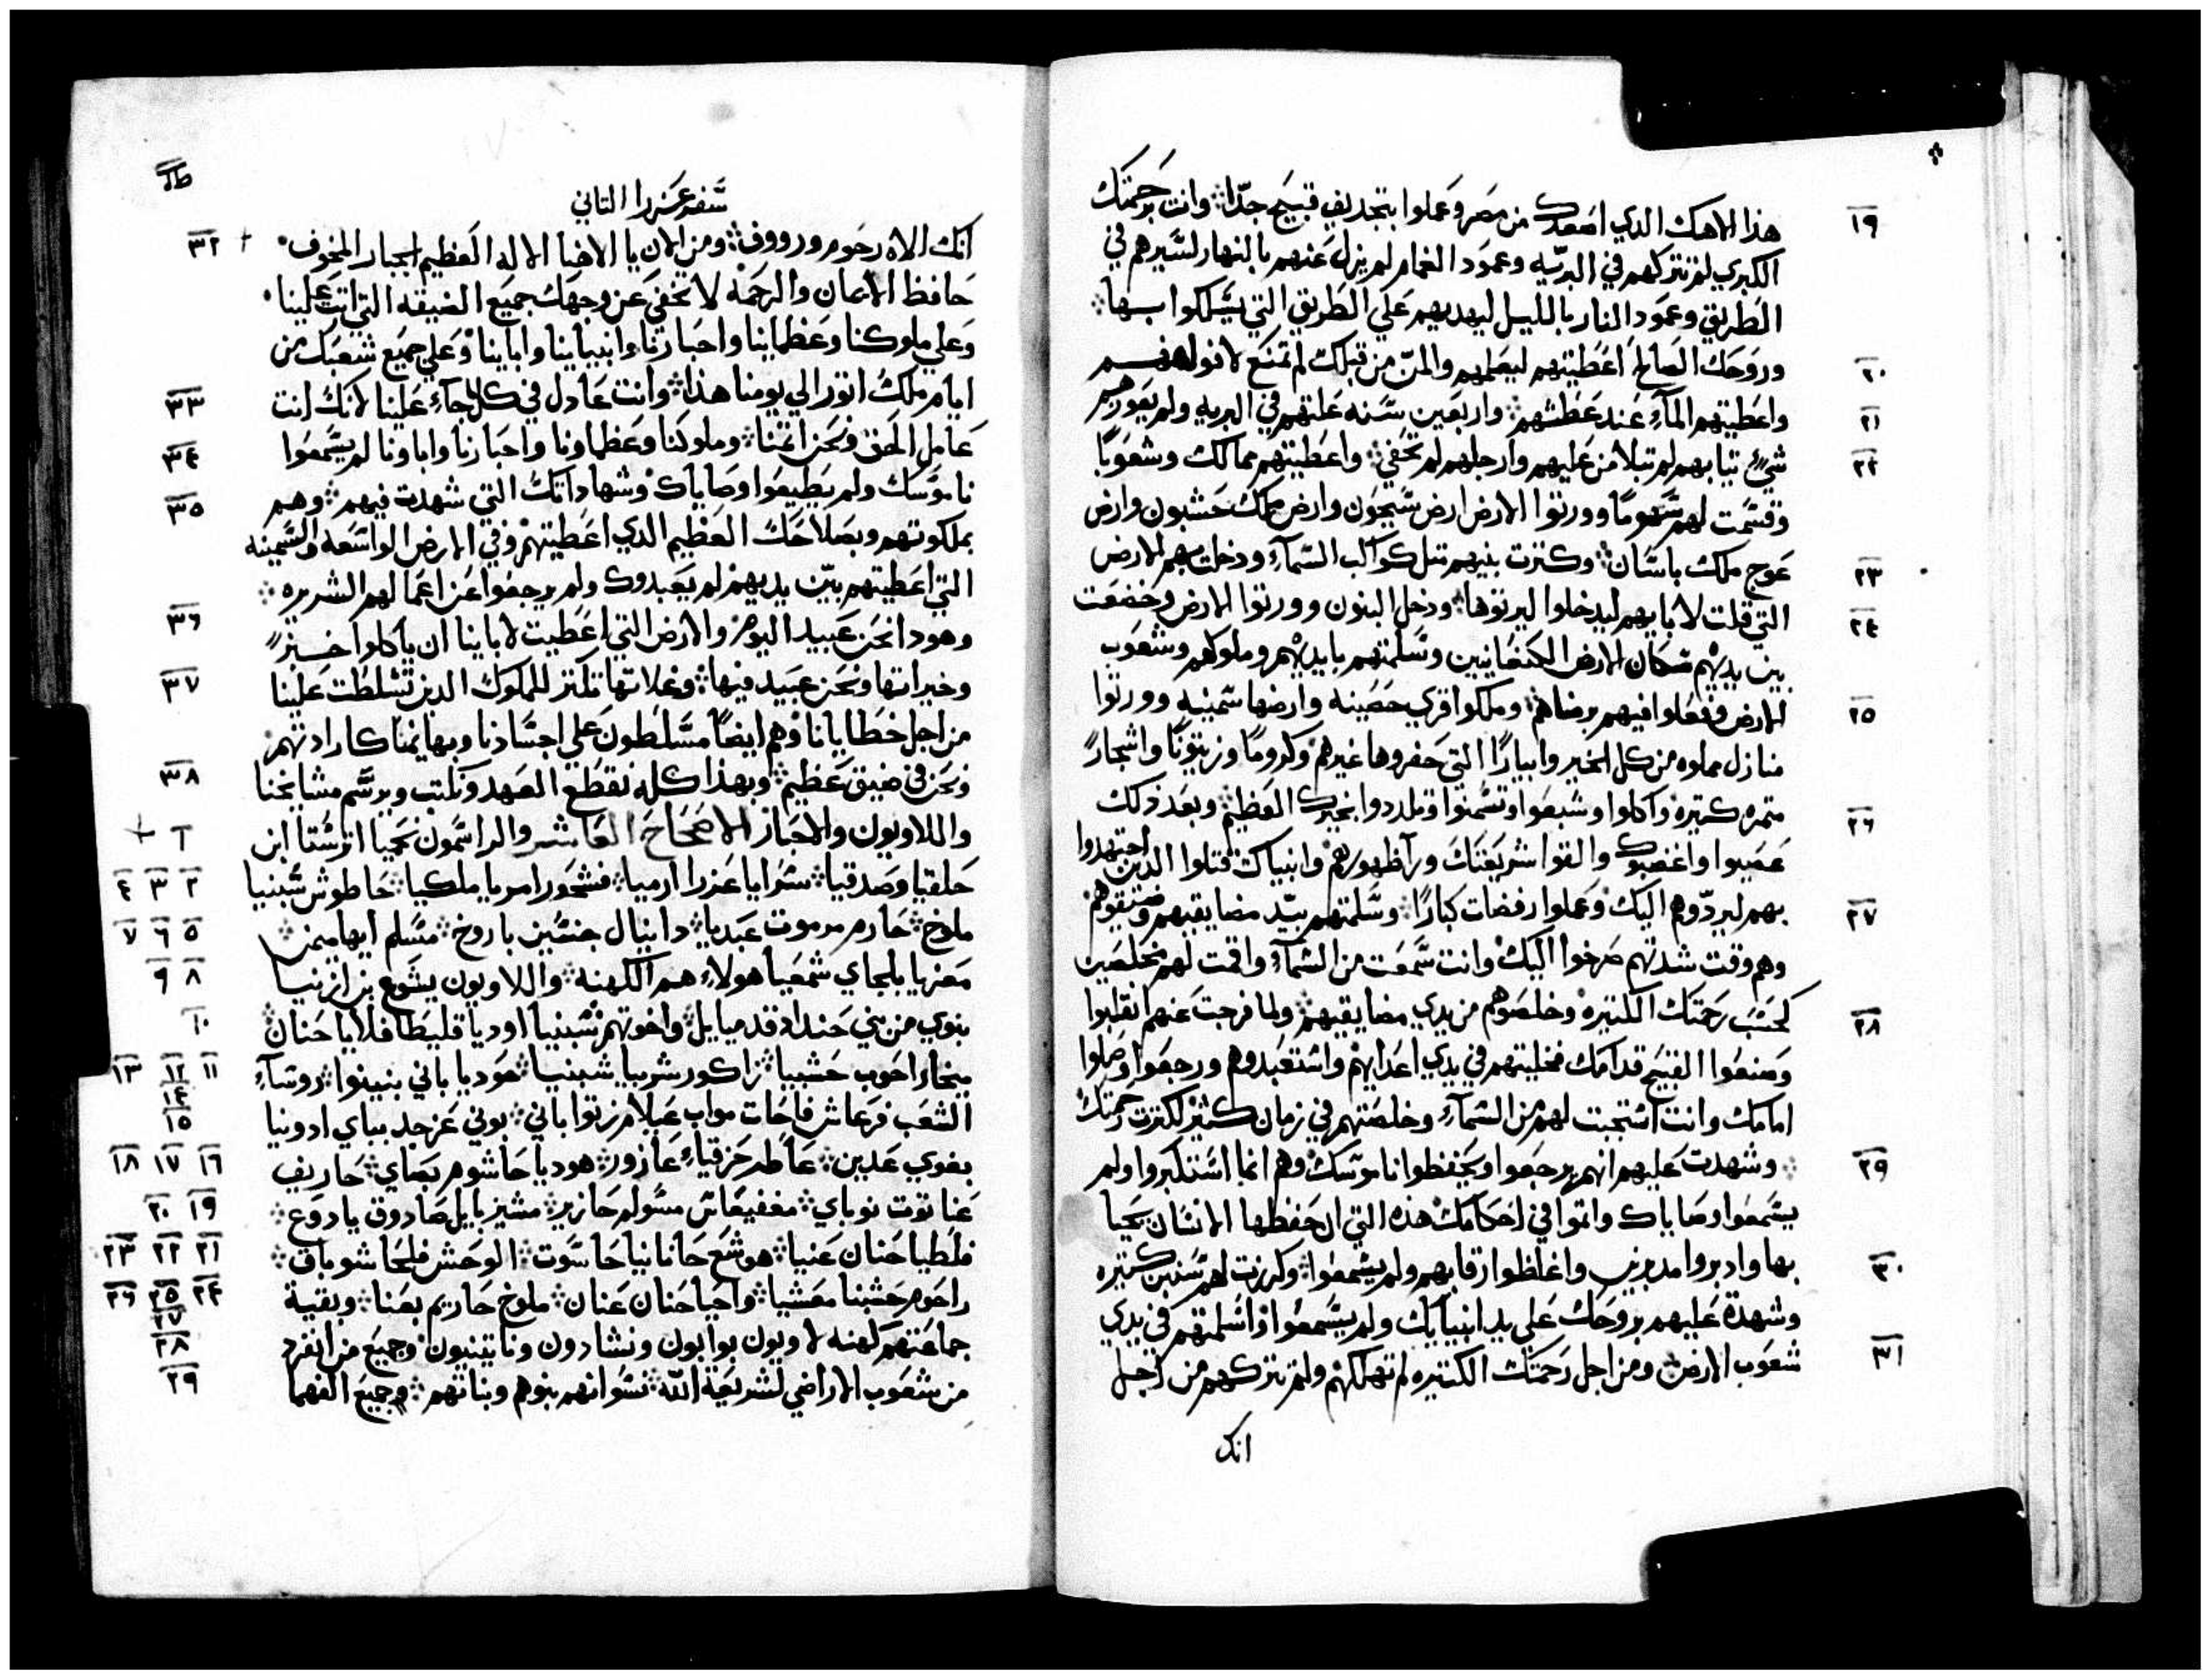 هذا الاهك الدي اصعدك من مصر وعملوا بتجديف قبيح جدّا وانت برحمتك
١٩
الكبري لم تتركهم في البريه وعمود الغمام لم يزل عنهم بالنهار لتسيرهم في
الطريق وعمود النار بالليل ليهديهم علي الطريق التي يسلكوا بها
وروحك الصالح اعطيتهم ليعلمهم والمن من قبلك لم تمنع لافواههم
٢٠
واعطيتهم المآء عند عطشهم واربعين سنه علتهم في البريه ولم يعوزهم
٢١
شيء تيابهم لم تبلا من عليهم وارجلهم لم تحفي واعطيتهم ممالك وشعوبًا
٢٢
وقسمت لهم سهومًا وورتوا الارض ارض سيحون وارض ملك حشبون وارض
عوج ملك باسان وكترت بنيهم متل كواكب السمآء ودخلت بهم الارض
٢٣
التي قلت لابايهم ليدخلوا ليرتوها ودخل البنون وورتوا الارض وخضعت
٢٤
بين يديهم سكان الارض الكنعانيين وسلمتهم بايديهم وملوكهم وشعوب
الارض وفعلوا فيهم برضاهم وملكوا قري حصينه وارضها سمينه وورتوا
٢٥
منازل مملوه من كل الخير وابيارًا التي حفروها غيرهم وكرومًا وزيتونًا واشجارً
متمره كتيره واكلوا وشبعوا وتسمنوا وتلددوا بخيرك العظيم وبعد ذلك
عصيوا واغضبوك والقوا شريعتك ورآ ظهورهم وانبياك قتلوا الدين اجتهدوا
٢٦
بهم ليردّوهم اليك وعملوا رفضات كبارًا وسلمتهم بيد مضايقيهم وضيقوهم
٢٧
وهم وقت شدتهم صرخوا اليك وانت سمعت من السمآء واقمت لهم مخلصين
كحسب رحمتك الكتيره وخلصوهم من يدي مضايقيهم ولما فرجت عنهم انقلبوا
٢٨
وصنعوا القبيح قدامك فخليتهم في يدي اعدايهم واستعبدوهم ورجعوا وصلوا
امامك وانت استجبت لهم من السمآء وخلصتهم في زمان كتير لكترت رحمتك
وشهدت عليهم انهم يرجعوا ويحفظوا ناموسك وهم انما استكبروا ولم
٢٩
يسمعوا وصاياك واتموا في احكامك هذه التي ان حفظها الانسان يحيا
بها وادبروا مدبرين واغلظوا رقابهم ولم يسمعوا وكررت لهم سنين كتيره
٣٠
وشهدة عليهم بروحك علي يد انبيايك ولم يسمعوا فاسلمتهم في يدي
شعوب الارض ومن اجل رحمتك الكتيره لم تهلكهم ولم تتركهم من اجل
٣١
انك
سفر عزرا التاني
انك الاه رحوم ورووف ومن الان يا الاهنا الاله العظيم الجبار المخوف
٣٢
حافظ الايمان والرحمه لا تخفي عن وجهك جميع الضيقه التي اتت علينا
وعلي ملوكنا وعظماينا واحبارنا وانبياينا واباينا وعلي جميع شعبك من
ايام ملك اتور الي يومنا هذا وانت عادل في كل ما جآء علينا لانك انت
٣٣
عامل الحق ونحن اتمنا وملوكنا وعظماونا واحبارنا واباونا لم يسمعوا
٣٤
ناموسك ولم يطيعوا وصاياك وشهاداتك التي شهدت فيهم وهم
٣٥
بملكوتهم وبصلاحك العظيم الدي اعطيتهم وفي الارض الواسعه والسمينه
التي اعطيتهم بين يديهم لم يعبدوك ولم يرجعوا عن اعمالهم الشريره
وهودا نحن عبيد اليوم والارض التي اعطيت لاباينا ان ياكلوا خبزً
٣٦
وخيراتها ونحن عبيد فيها وغلاتها تكتر للملوك الدين تسلطت علينا
٣٧
من اجل خطايانا وهم ايضًا مسلطون علي اجسادنا وبهايمنا كارادتهم
ونحن في ضيق عظيم وبهذا كله نقطع العهد ونكتب ويرسم مشايخنا
٣٨
واللاويون والاحبار الاصحاح العاشر والراسمون نحميا اترشتا ابن
حلقيا وصدقيا سرايا عزرا ارميا فشحور امريا ملكيا حاطوش شبنيا
٢ ٣ ٤
ملوخ حارم مرموت عبديا دانيال جنتين باروخ مسلم ابيا ميمن
٥ ٦ ٧
معزيا بلجاي شمعيا هولاء هم الكهنه واللاويون يشوع بن ازنيا
٨ ٩
بنوي من بني حنداد قدميايل واخوتهم شبنيا اوديا قليطا فلايا حنان
١٠
ميخا راحوب حشبيا زاكور شربيا شبنيا هوديا باني بنينوا روسآء
١١ ١٢ ١٣
١٤
الشعب فرعاش فاحات مواب عيلام زتوا باني بوني عزجد بباي ادونيا
١٥
بغوي عدين عاطر حزقياء عازور هوديا حاشوم بصاي حاريف
١٦ ١٧ ١٨
عناتوت نوباي مغفيعاش مسولم حازير مشيزبايل صادوق يادوع
١٩ ٢٠
فلطيا حنان عنيا هوشع حانانيا حاسوت الوحش فلحا شوباق
٢١ ٢٢ ٢٣
راحوم حشبنا معشيا واحيا حنان عنان ملوخ حاريم بعنا وبقية
٢٤ ٢٥ ٢٦
٢٧
جماعتهم كهنه لاويون بوابون ونشادون وناتينيون وجميع من انفرد
٢٨
من شعوب الاراضي لشريعة الله نسوانهم بنوهم وبناتهم وجميع الفهما
٢٩